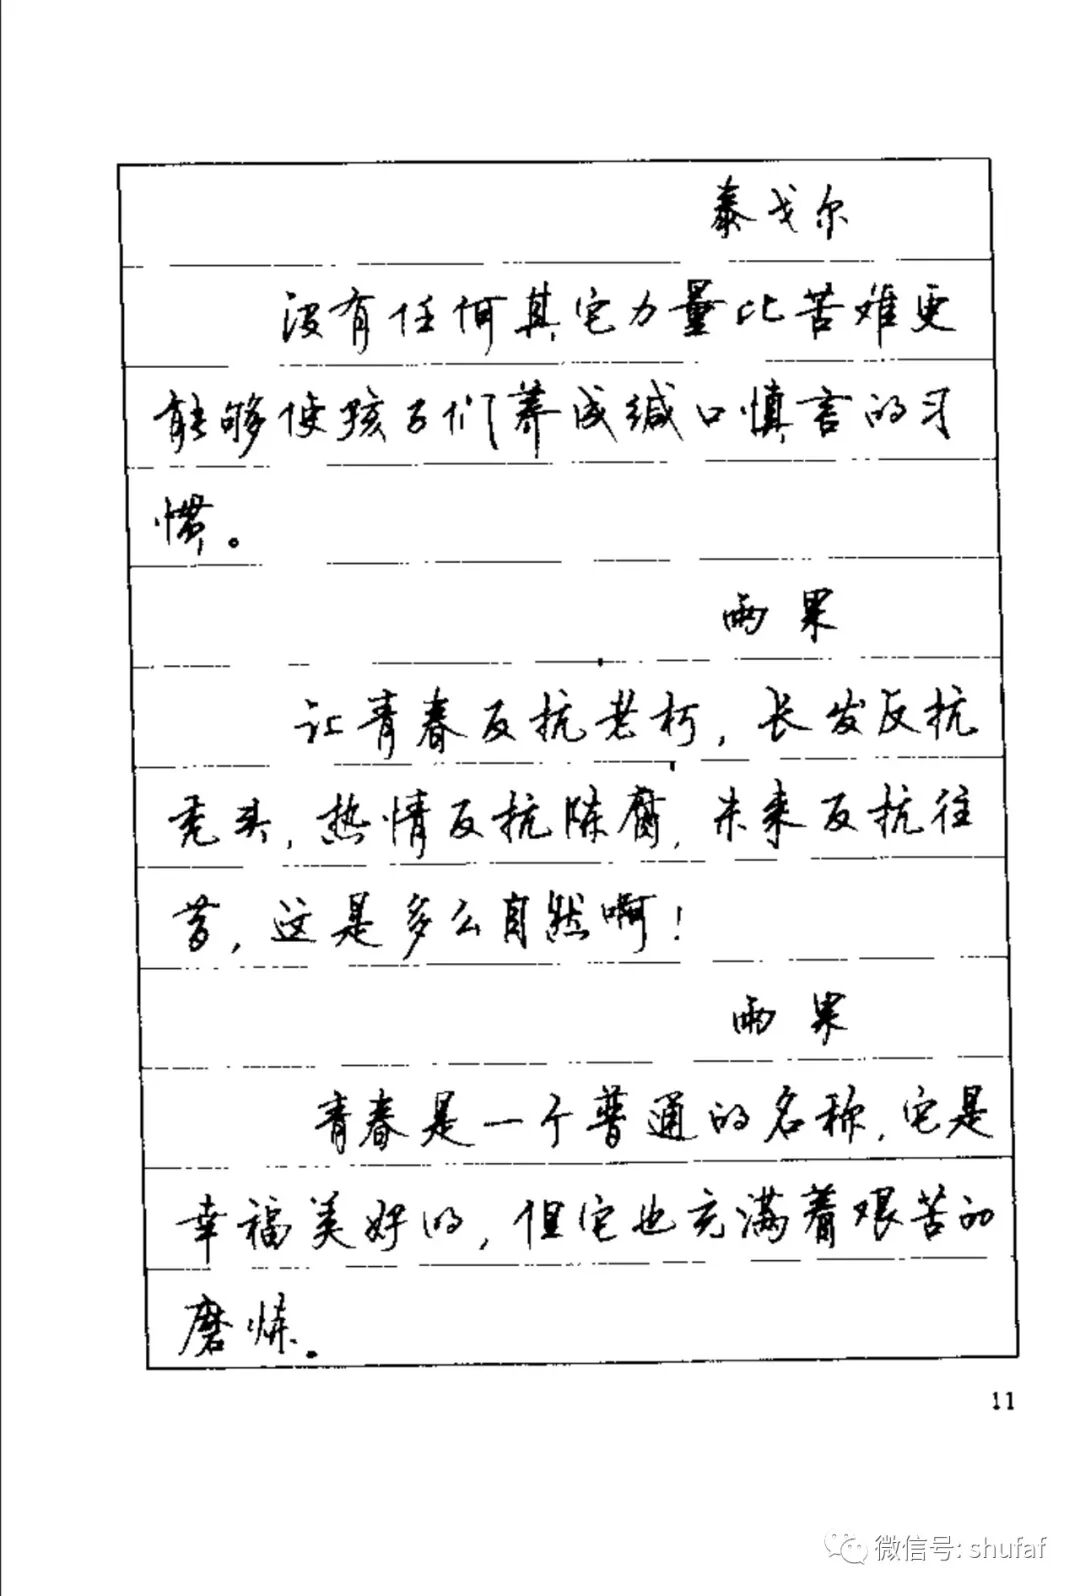 泰戈尔
没有任何其它力量比苦难更
能够使孩子们养成缄口慎言的习
惯。
雨果
让青春反抗老朽，长发反抗
秃头，热情反抗陈腐，未来反抗往
昔，这是多么自然啊！
雨果
青春是一个普通的名称，它是
幸福美好的，但它也充满着艰苦的
磨炼。
11
微信号: shufaf